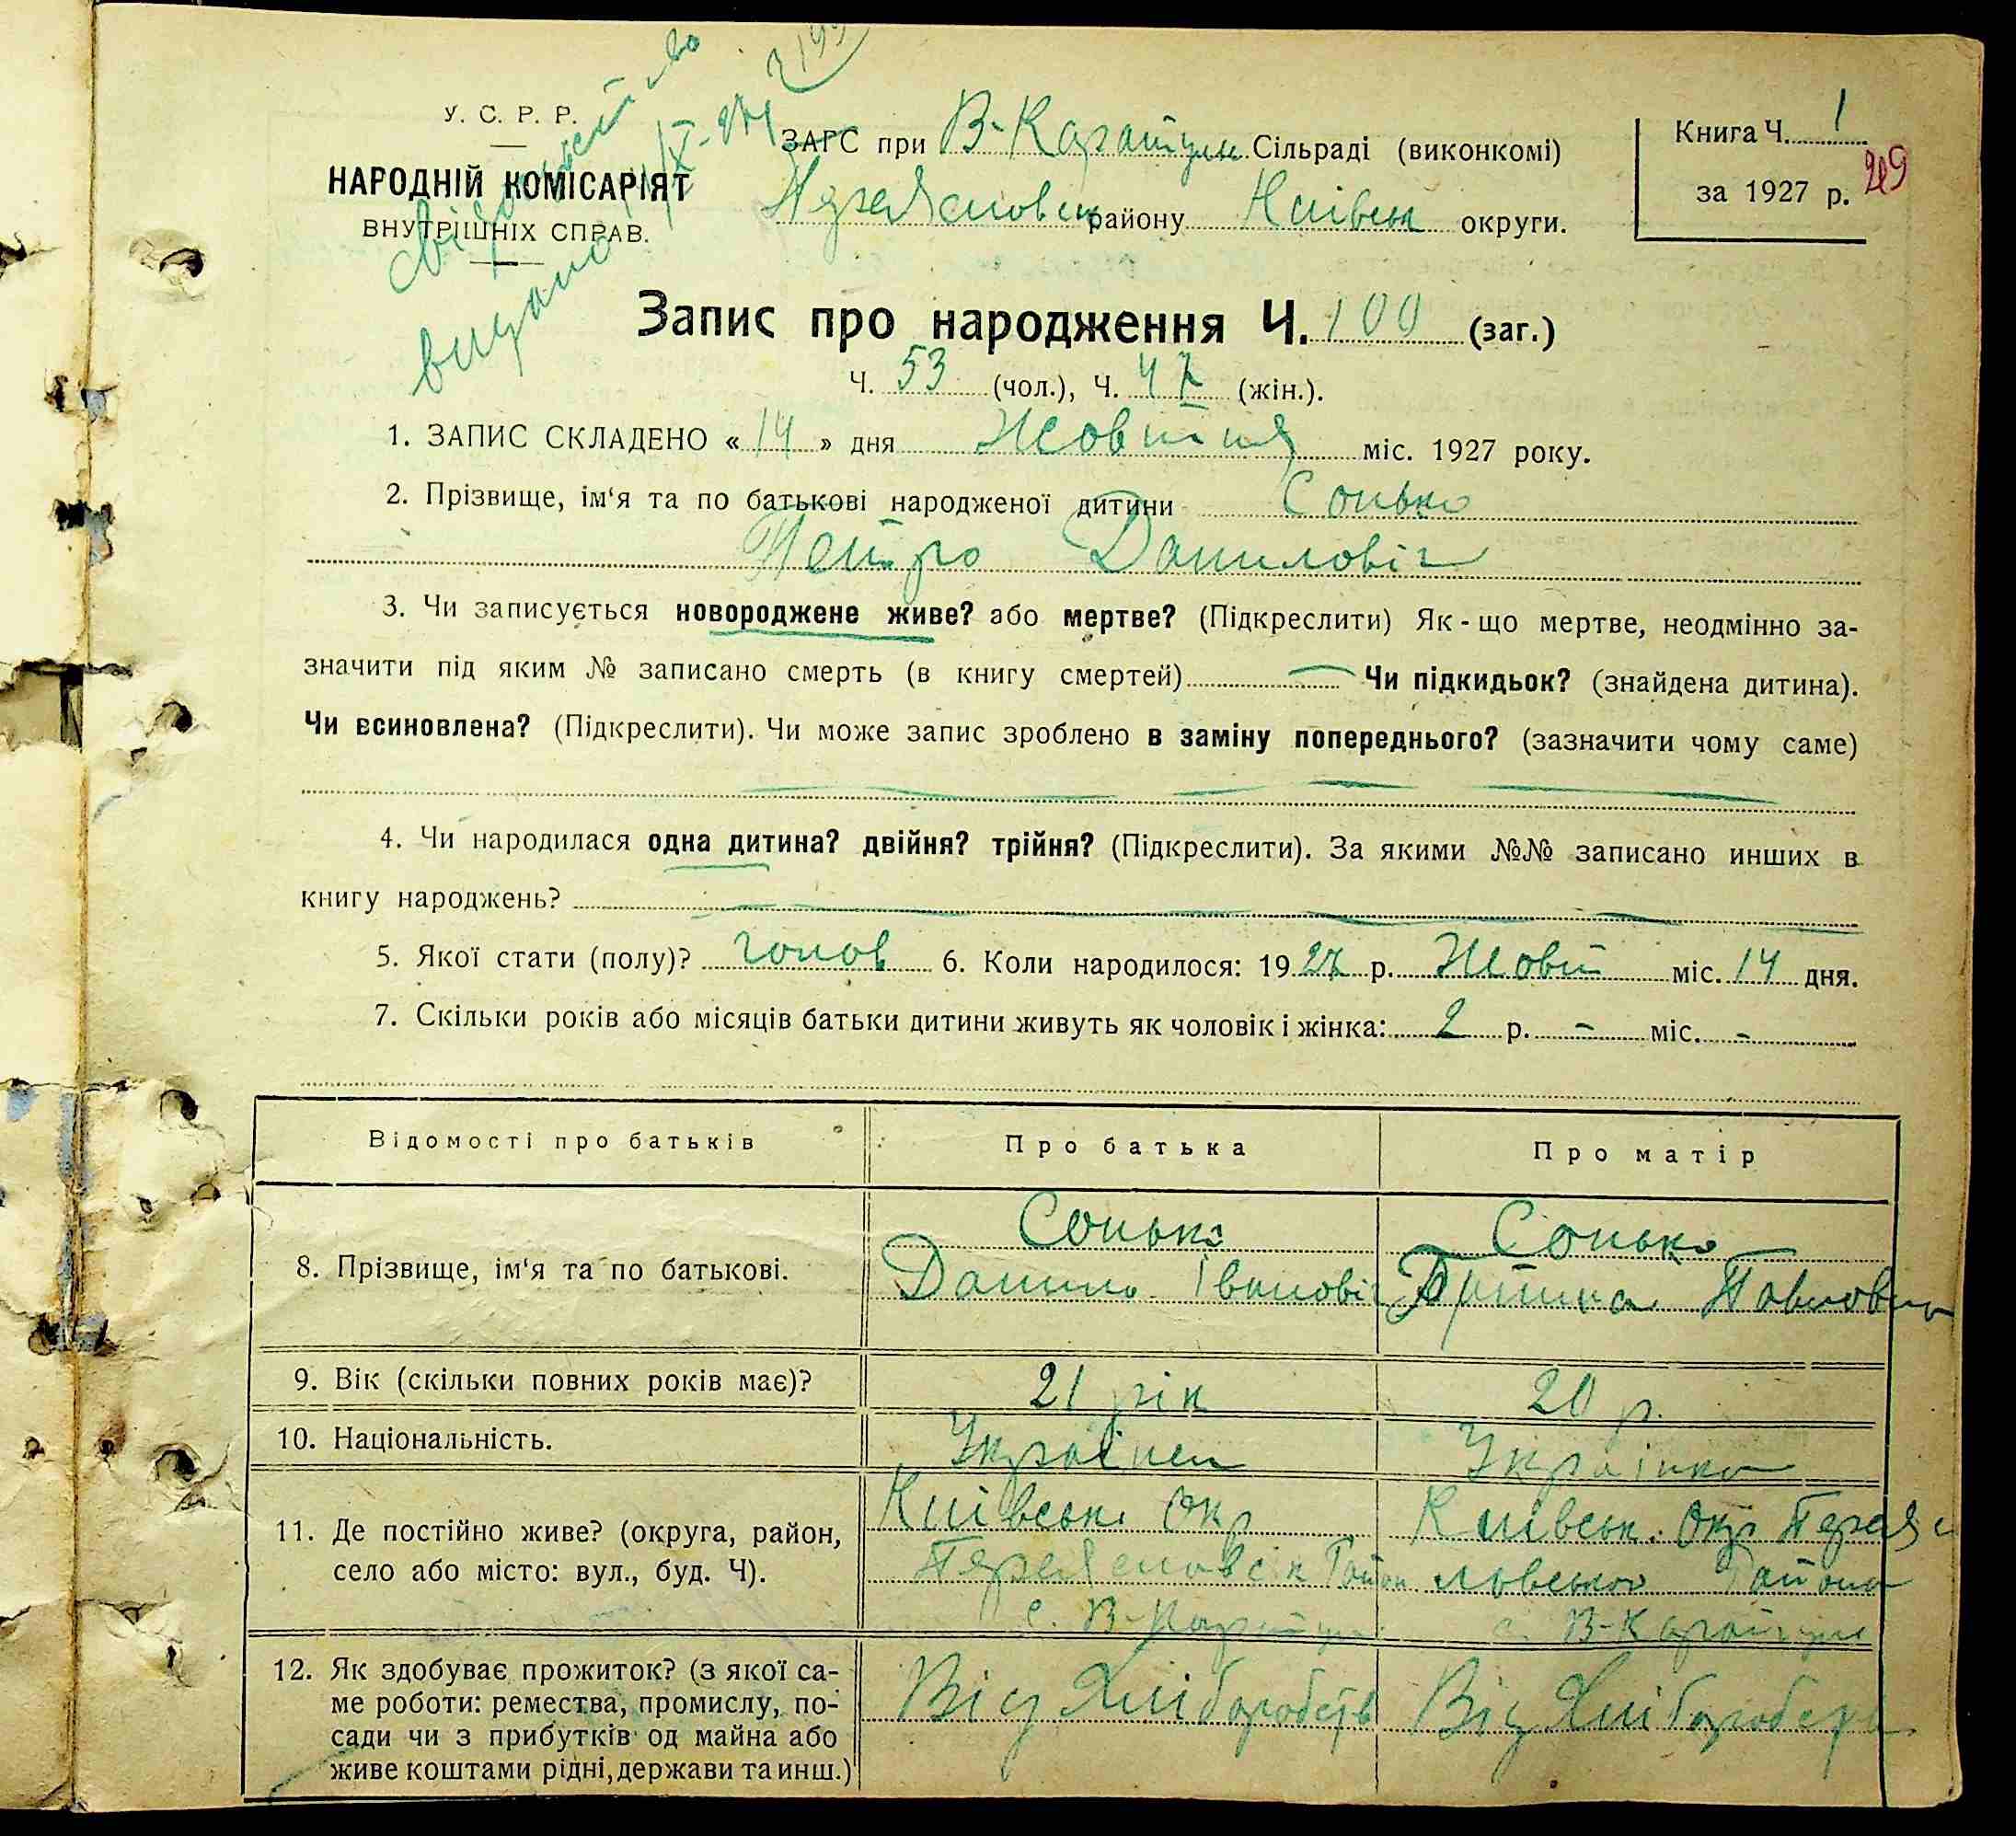 У. С. Р. Р.
НАРОДНІЙ КОМІСАРІЯТ
ВНУТРІШНІХ СПРАВ.
Свідоцтво
видано
ЗАГС при В-Каратул Сільраді (виконкомі)
Переяславськ району Київськ округи.
Книга Ч. 1
за 1927 р.
Запис про народження Ч. 100 (заг.)
Ч. 53 (чол.), Ч. 47 (жін.).
1. ЗАПИС СКЛАДЕНО «14» дня Жовтня міс. 1927 року.
2. Прізвище, ім'я та по батькові народженої дитини Сонько
Петро Данилович
3. Чи записується новороджене живе? або мертве? (Підкреслити) Як-що мертве, неодмінно за-
значити під яким № записано смерть (в книгу смертей) — Чи підкидьок? (знайдена дитина).
Чи всиновлена? (Підкреслити). Чи може запис зроблено в заміну попереднього? (зазначити чому саме)
4. Чи народилася одна дитина? двійня? трійня? (Підкреслити). За якими №№ записано инших в
книгу народжень?
5. Якої стати (полу)? чолов 6. Коли народилося: 1927 р. Жовт міс. 14 дня.
7. Скільки років або місяців батьки дитини живуть як чоловік і жінка: 2 р. - міс. -
Відомості про батьків Про батька Про матір
8. Прізвище, ім'я та по батькові. Сонько Сонько
Данило Іванович Павловна
9. Вік (скільки повних років має)? 21 рік 20 р.
10. Національність. Українец Українка
11. Де постійно живе? (округа, район,
село або місто: вул., буд. Ч).
Київськ. Окр
Переясловськ Район
с. В-Каратул
Київськ. Окр Переяс
ловського Району
с. В-Каратул
12. Як здобуває прожиток? (з якої са-
ме роботи: ремества, промислу, по-
сади чи з прибутків од майна або
живе коштами рідні, держави та инш.)
Від Хліборобств
Від Хліборобств